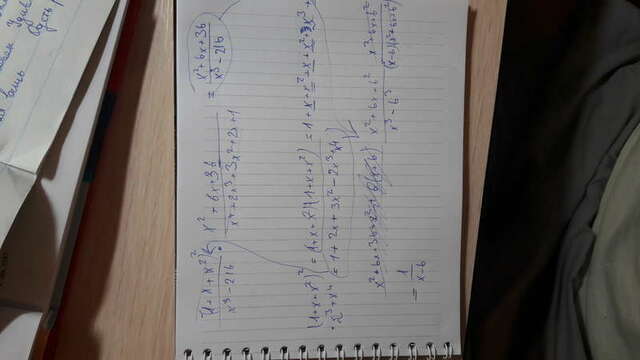 вещь
Пусть
(1+x+x²)² / x³-216 · x²+6x+36 / x⁴+2x³+3x²+2x+1 = x²+6x+36 / x³-216
(1+x+x²)² = (1+x+x²)(1+x+x²) = 1+x+x²+x+x²+2x³+
+2x³+x⁴ (= 1+2x+3x²-2x³+x⁴)
x²+6x-6² / x³-6³ x²+6x+6² / (x-6)(x²+6x+6²)
= 1 / x-6